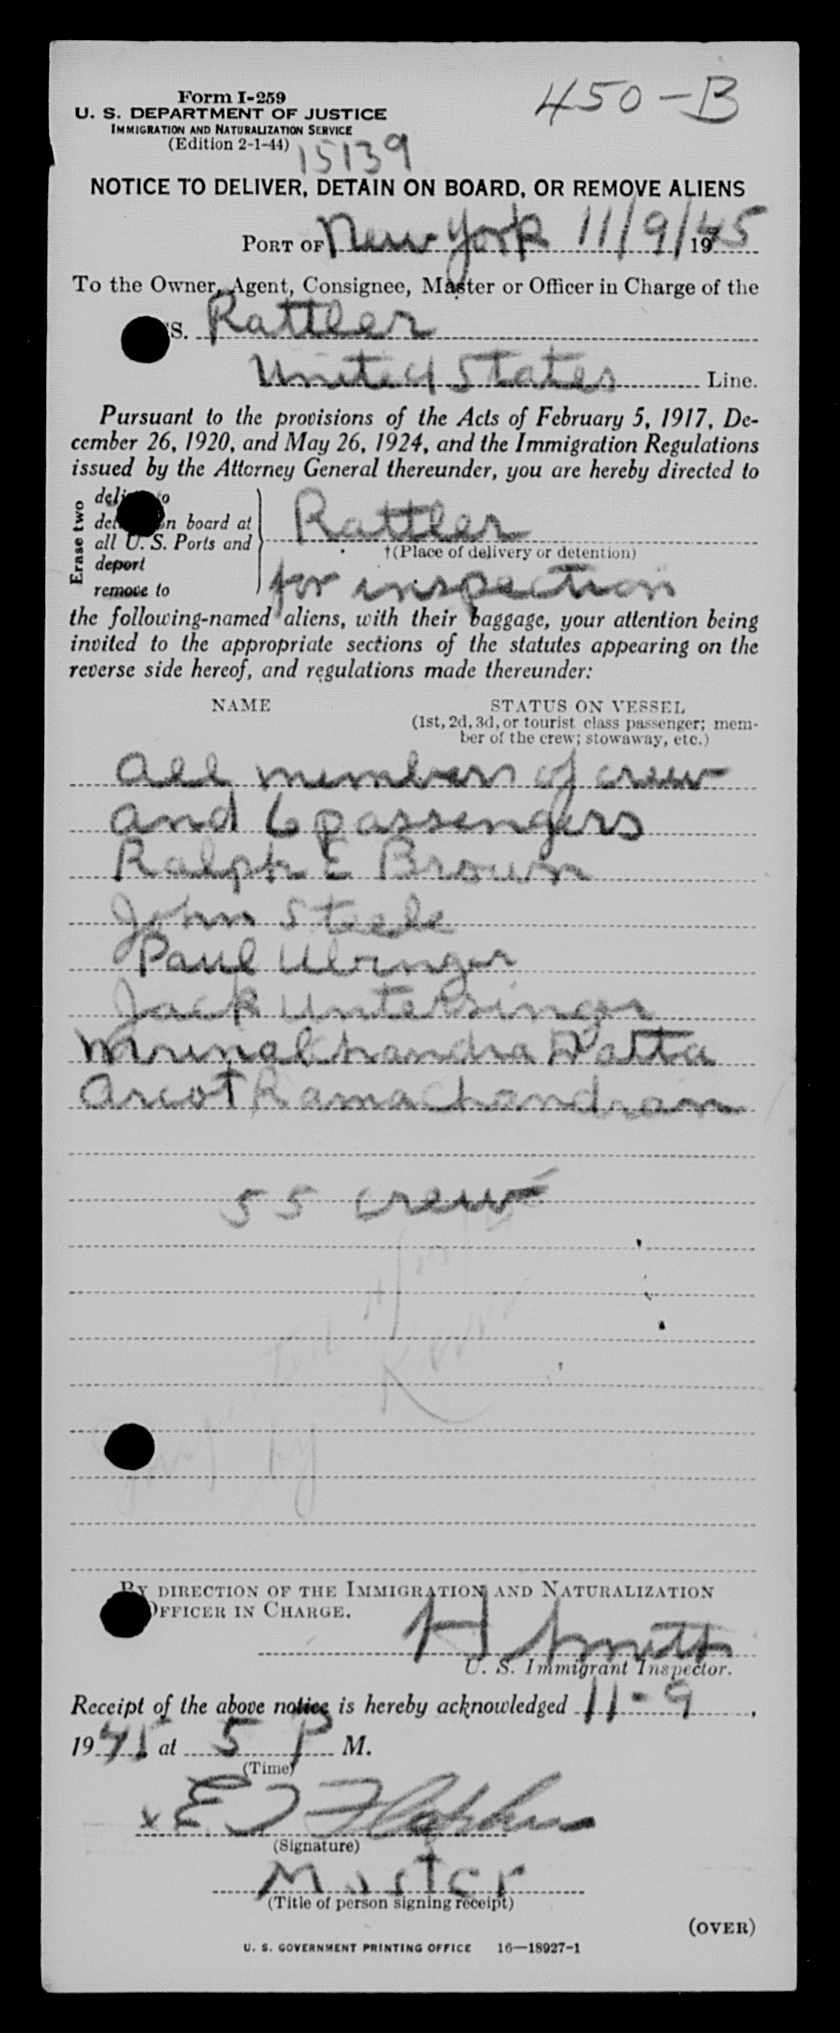 Form I-259
450-B
U. S. DEPARTMENT OF JUSTICE
IMMIGRATION AND NATURALIZATION SERVICE
(Edition 2-1-44)
15139
NOTICE TO DELIVER, DETAIN ON BOARD, OR REMOVE ALIENS
PORT OF New York 11/9/1945
To the Owner, Agent, Consignee, Master or Officer in Charge of the
S. Rattler
United States Line.
Pursuant to the provisions of the Acts of February 5, 1917, De-
cember 26, 1920, and May 26, 1924, and the Immigration Regulations
issued by the Attorney General thereunder, you are hereby directed to
Erase two
deliver to
detain on board at
all U. S. Ports and
deport
remove to
Rattler
†(Place of delivery or detention)
for inspection
the following-named aliens, with their baggage, your attention being
invited to the appropriate sections of the statutes appearing on the
reverse side hereof, and regulations made thereunder:
NAME STATUS ON VESSEL
(1st, 2d, 3d, or tourist class passenger; mem-
ber of the crew; stowaway, etc.)
all members of crew
and 6 passengers
Ralph E Brown
John Steele
Paul Ulringer
Jack Untersinger
Mrinal Chandra Datta
Arcot Ramachandram
55 crew
By DIRECTION OF THE IMMIGRATION AND NATURALIZATION
OFFICER IN CHARGE.
H Smith
U. S. Immigrant Inspector.
Receipt of the above notice is hereby acknowledged 11-9,
1945 at 5 P M.
(Time)
x E J
(Signature)
Master
(Title of person signing receipt)
(OVER)
U. S. GOVERNMENT PRINTING OFFICE 16—18927-1